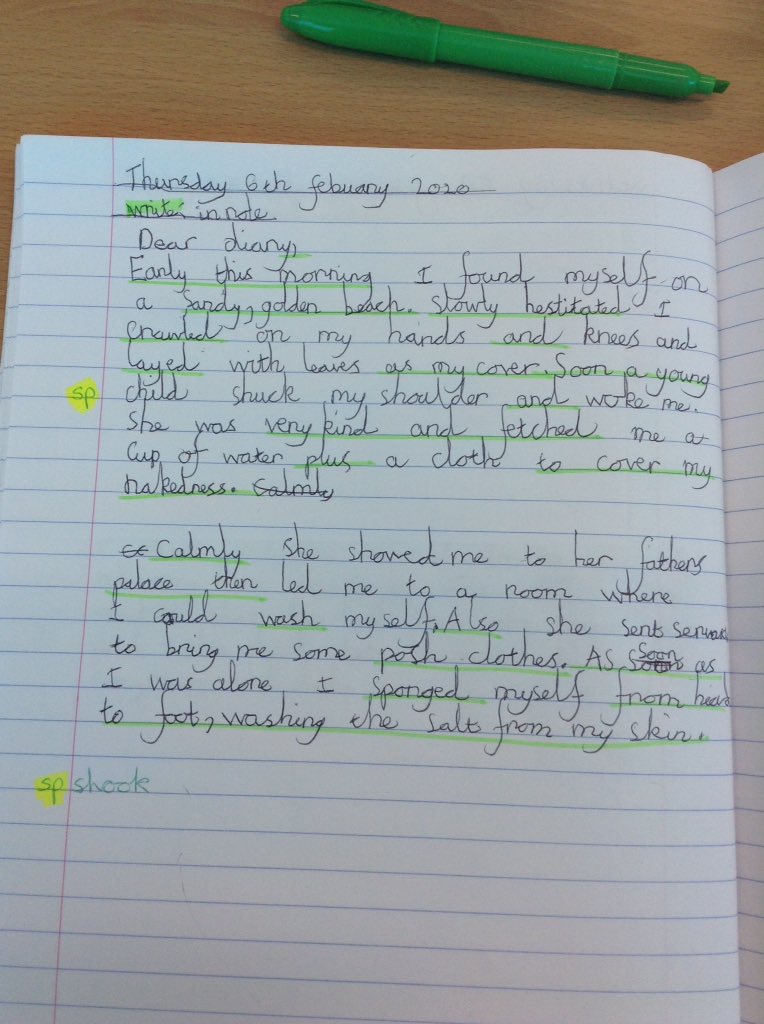 Thursday 6th febuary 2020
write in role
Dear diary,
Early this morning I found myself on
a Sandy, golden beach. Slowly hestitated I
crawled on my hands and knees and
layed with leaves as my cover. Soon a young
sp child shuck my shoulder and woke me.
She was very kind and fetched me a
Cup of water plus a cloth to cover my
nakedness. Calmly
Calmly she showed me to her fathers
palace then led me to a room where
I could wash myself. Also she sent servan
to bring me some posh clothes. As soon as
I was alone I sponged myself from head
to foot, washing the salts from my skin.
sp shook